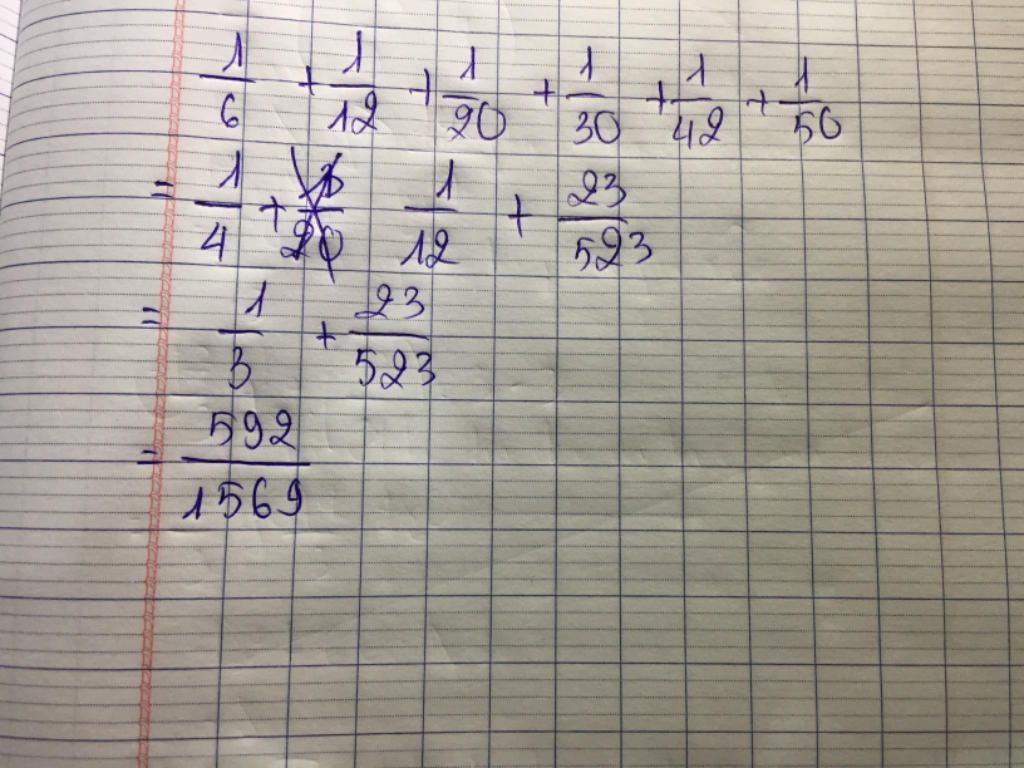 1/6 + 1/12 + 1/20 + 1/30 + 1/42 + 1/50
= 1/4 + 1/12 + 23/523
= 1/3 + 23/523
= 592/1569